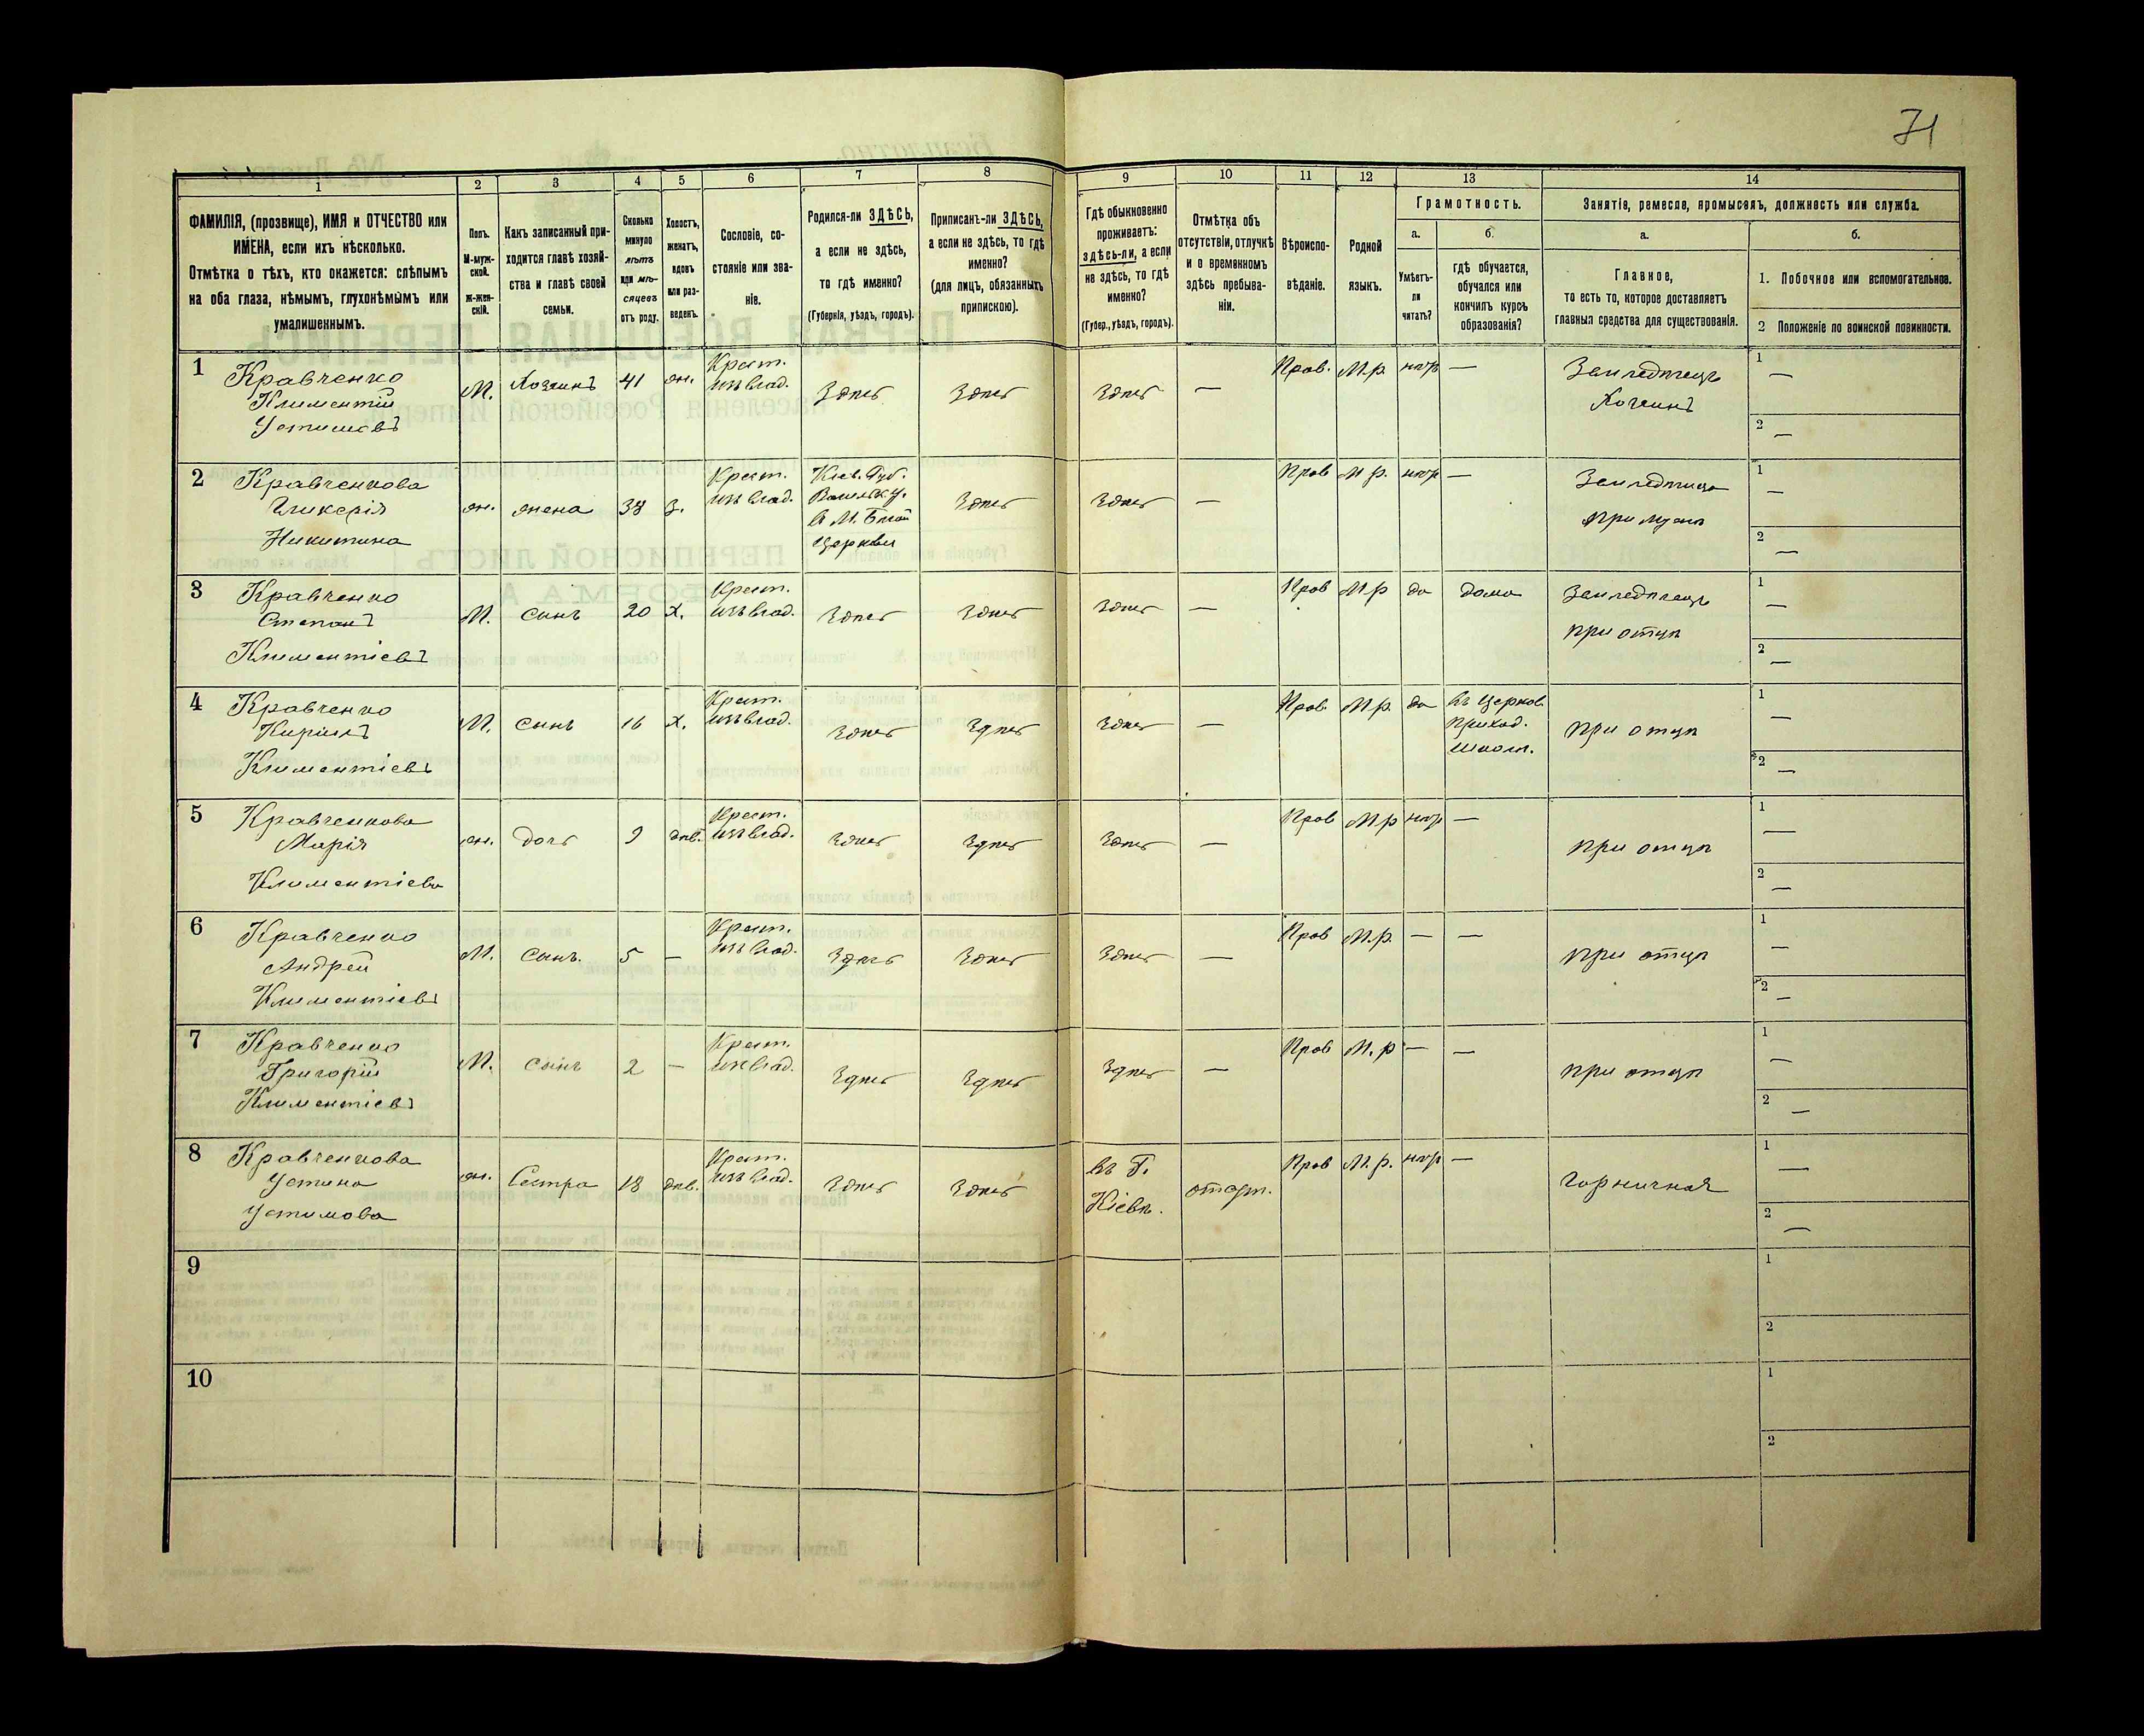 71
1 2 3 4 5 6 7 8 9 10 11 12 13 14
ФАМИЛІЯ, (прозвище), ИМЯ и ОТЧЕСТВО или
ИМЕНА, если ихъ нѣсколько.
Отмѣтка о тѣхъ, кто окажется: слѣпымъ
на оба глаза, нѣмымъ, глухонѣмымъ или
умалишеннымъ.
Полъ.
М-муж-
ской.
ж-жен-
скій.
Какъ записанный при-
ходится главѣ хозяй-
ства и главѣ своей
семьи.
Сколько
минуло
лѣтъ
или мѣ-
сяцевъ
отъ роду.
Холостъ,
женатъ,
вдовъ
или раз-
веденъ.
Сословіе, со-
стояніе или зва-
ніе.
Родился-ли ЗДѢСЬ,
а если не здѣсь,
то гдѣ именно?
(Губернія, уѣздъ, городъ).
Приписанъ-ли ЗДѢСЬ,
а если не здѣсь, то гдѣ
именно?
(для лицъ, обязанныхъ
припискою).
Гдѣ обыкновенно
проживаетъ:
здѣсь-ли, а если
не здѣсь, то гдѣ
именно?
(Губер., уѣздъ, городъ).
Отмѣтка объ
отсутствіи, отлучкѣ
и о временномъ
здѣсь пребыва-
ніи.
Вѣроиспо-
вѣданіе.
Родной
языкъ.
Грамотность.
а.
Умѣетъ-
ли
читать?
б.
гдѣ обучается,
обучался или
кончилъ курсъ
образованія?
Занятіе, ремесло, промыселъ, должность или служба.
а.
Главное,
то есть то, которое доставляетъ
главныя средства для существованія.
б.
1. Побочное или вспомогательное.
2 Положеніе по воинской повинности.
1 Кравченко
Климентій
Устимовъ
М. Хозяинъ 41 жн.
Крест.
изъ влад.
Здѣсь Здѣсь Здѣсь — Прав. М.р. нѣтъ —
Земледѣлецъ
Хозяинъ
1 —
2 —
2 Кравченкова
Гликерія
Никитина
жн. жена 38 з.
Крест.
изъ влад.
Кіев. Губ.
Васильк. у.
в М. Бѣлой
Церкви
Здѣсь Здѣсь — Прав М р. нѣтъ —
при мужѣ
1 —
2 —
3 Кравченко
Степанъ
Климентіевъ
М. сынъ 20 х.
Крест.
изъ влад.
Здѣсь Здѣсь Здѣсь — Прав М р да дома
Земледѣлецъ
при отцѣ
1 —
2 —
4 Кравченко
Кирилъ
Климентіевъ
М. сынъ 16 х.
Крест.
изъ влад.
Здѣсь Здѣсь Здѣсь — Прав М р. да
въ Церков.
приход.
школ.
при отцѣ
1 —
2 —
5 Кравченкова
Марія
Климентіева
жн. дочь 9 дѣв.
Крест.
изъ влад.
Здѣсь Здѣсь Здѣсь — Прав М р нѣтъ —
при отцѣ
1 —
2 —
6 Кравченко
Андрей
Климентіевъ
М. сынъ. 5 —
Крест.
изъ влад.
Здѣсь Здѣсь Здѣсь — Прав М.р. — —
при отцѣ
1 —
2 —
7 Кравченко
Григорій
Климентіевъ
М. сынъ 2 —
Крест.
изъ влад.
Здѣсь Здѣсь Здѣсь — Прав М. р — —
при отцѣ
1 —
2 —
8 Кравченкова
Устина
Устимова
жн. Сестра 18 дѣв.
Крест.
изъ влад.
Здѣсь Здѣсь
въ Г.
Кіевѣ.
отсут.
Прав М.р. нѣтъ —
горничная
1 —
2 —
9
1
2
10
1
2